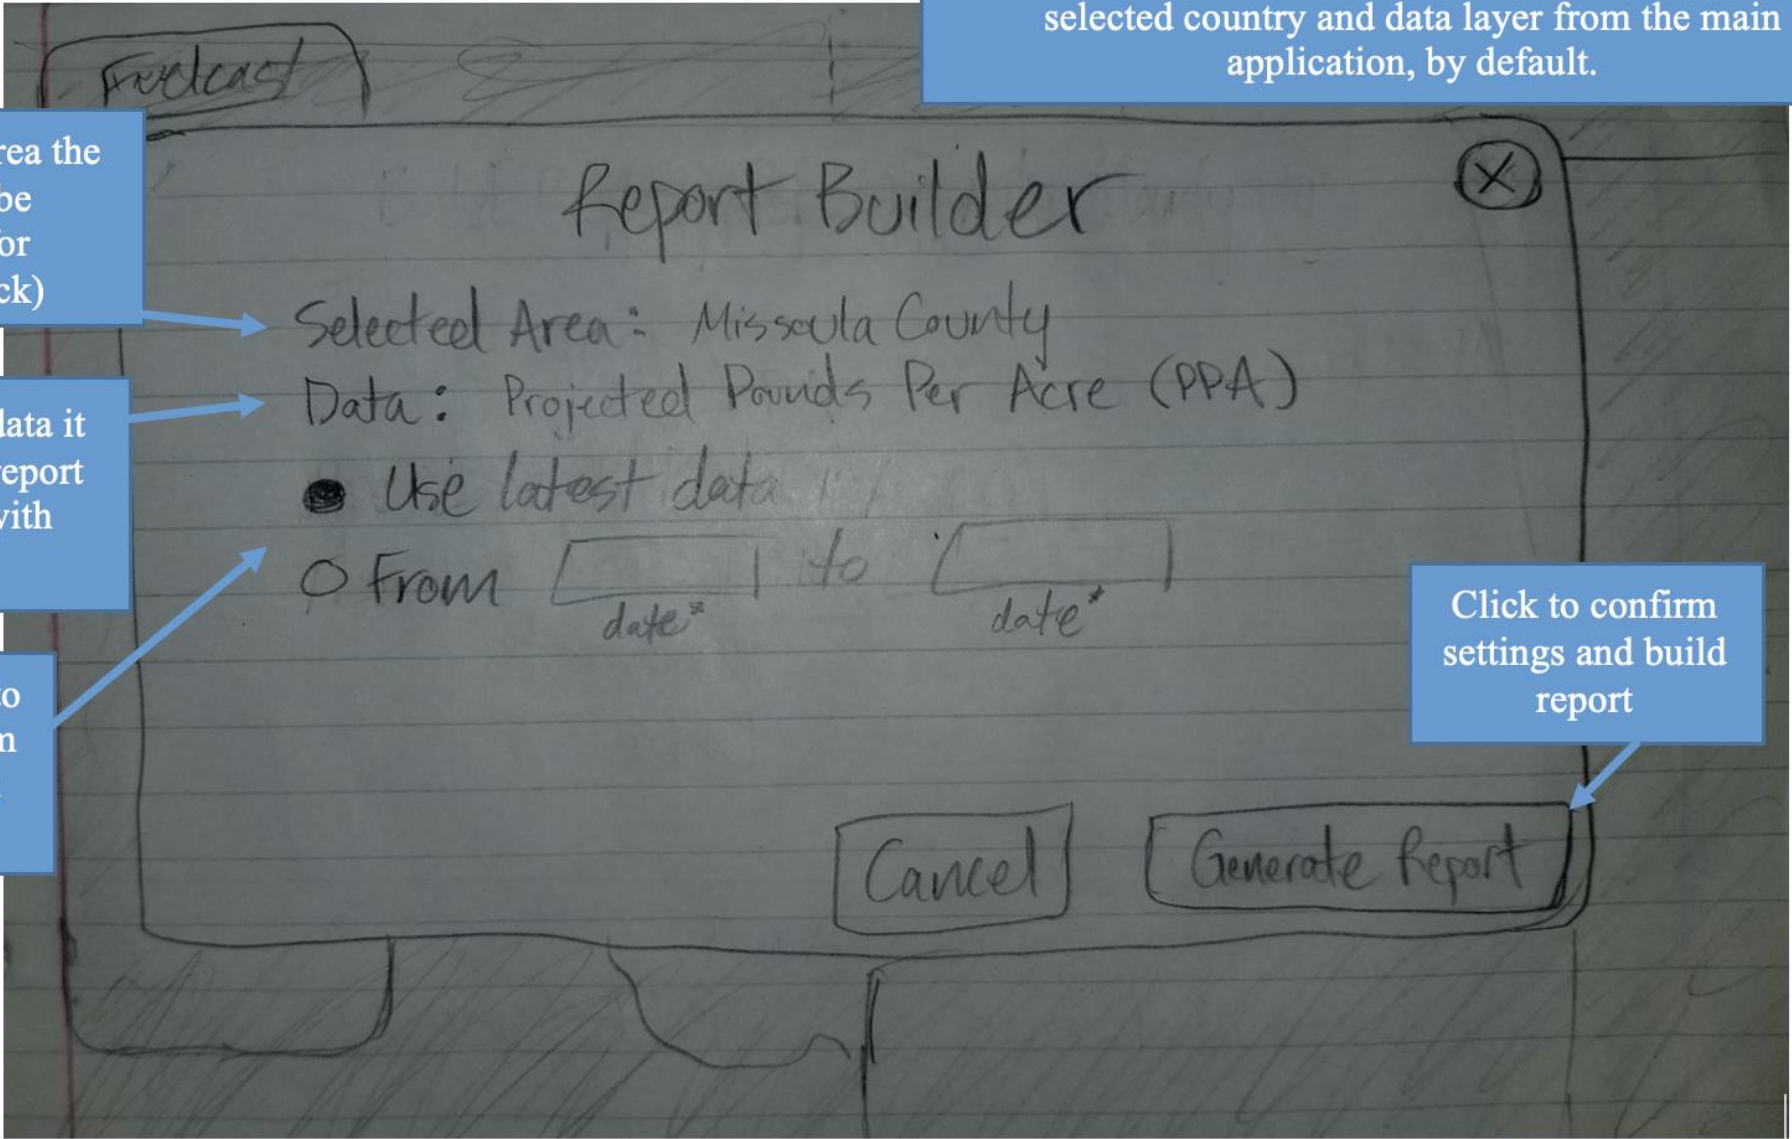 selected country and data layer from the main
application, by default.
Fuelcast
rea the
be
for
ck)
Report Builder
X
Selected Area: Missoula County
Data: Projected Pounds Per Acre (PPA)
data it
report
with
Use latest data
From to
date* date*
Click to confirm
settings and build
report
to
m
Cancel Generate Report